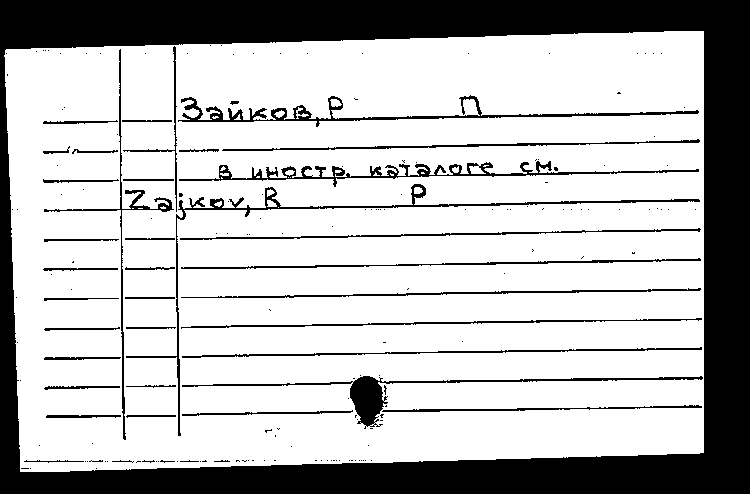 Зайков, Р П
в иностр. каталоге см.
Zajkov, R P